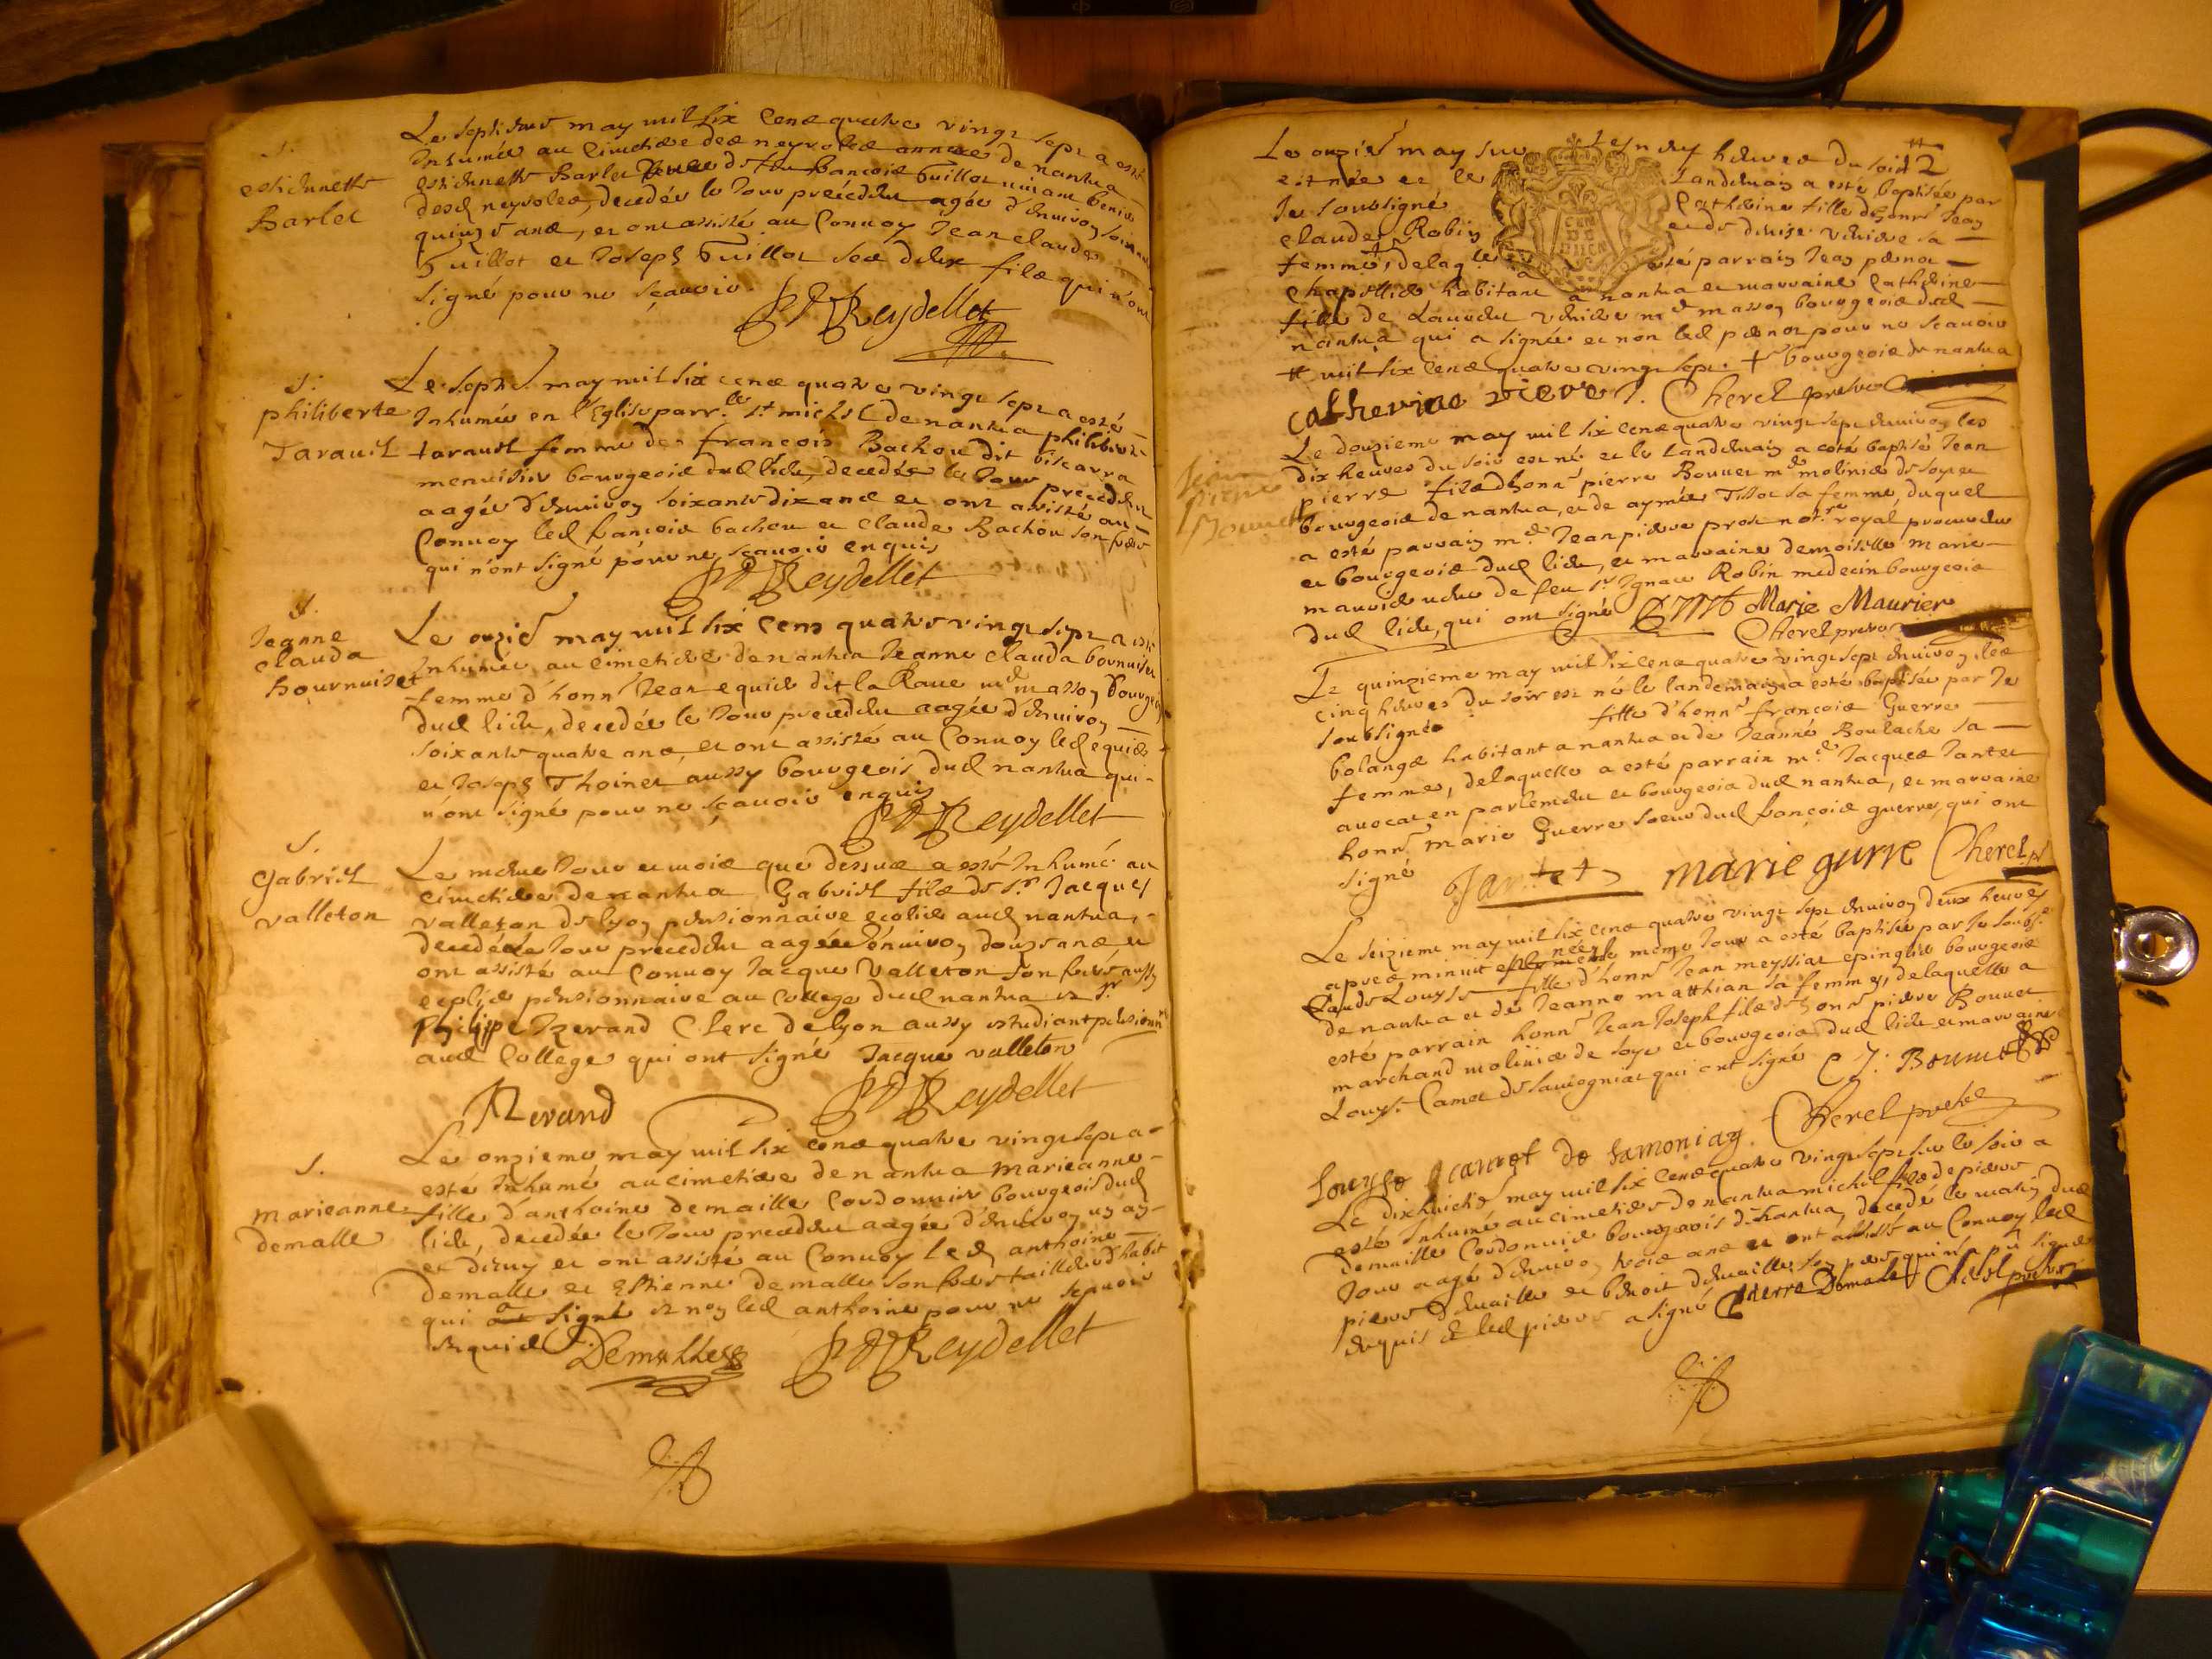 Le septiesme may mil six cens quatre vingt sept a esté
Inhumée au cimetiere des neyroles annexe de nantua
S.
estiennette
Barlet
estiennette Barlet vefve de feu francois Guillot vivant
desd neyroles, decedée le jour precedent agée d'environ soixante
quinze ans, et ont assisté au Convoy Jean claude
Guillot et Joseph Guillot ses deux fils qui n'ont
signé pour ne sçavoir.
Reydellet
S.
philiberte
Tarault
Le sept. may mil six cens quatre vingt sept a esté
Inhumée en l'Eglise parr.le st michel de nantua philiberte
tarault femme de francois Bachou dit biscarra
menuisier bourgeois dud lieu, decedée le jour precedent
aagée d'environ soixante dix ans et ont assisté au
Convoy led francois bachou et claude Bachou son frere
qui n'ont signé pour ne sçavoir enquis
Reydellet
S.
Jeanne
clauda
bournuiset
Le onzie may mil six cens quatre vingt sept a esté
Inhumée au cimetiere de nantua Jeanne clauda bournuiset
femme d'honn Jean equis dit la Rave md masson bourgeois
dud lieu, decedée le jour precedent aagée d'environ
soixante quatre ans, et ont assisté au Convoy led equis
et Joseph Thoinet aussy bourgeois dud nantua qui
n'ont signé pour ne sçavoir enquis
Reydellet
S.
Gabriel
valleton
Le mesme jour et mois que dessus a esté Inhumé au
cimetiere de nantua Gabriel fils de sr Jacques
valleton de lyon pensionnaire ecolier aud nantua,
decedé le jour precedent aagé d'environ douze ans, et
ont assisté au Convoy Jacque Valleton son frere aussy
ecolier pensionnaire au College dud nantua et sr
Philippe Clerc de lyon aussy estudiant pensionn
aud College qui ont signé Jacque valleton
Reydellet
S.
marieanne
demalle
Le onzieme may mil six cens quatre vingt sept a
este Inhumé au cimetiere de nantua marieanne
fille d'anthoine demaille Cordonnier bourgeois dud
lieu, decedée le jour precedent aagée d'environ un an
et demy et ont assisté au Convoy led anthoine
Demalle et Estienne demalle son frere tailleur d'habit
qui a signé et non led anthoine pour ne sçavoir
enquis Demalle Reydellet
Le onzie may sur les neuf heures du soir # 2
est née et le Landemain a esté baptisée par
Je soubsigné Catherine fille d'honn Jean
claude Robin et de denise viviere sa
femme, delaq.le a esté parrain Jean
Chapellier habitant a nantua et marraine Catherine
fille de Laurent viviere md masson bourgeois dud
nantua qui a signée et non led pour ne scavoir
# mil six cens quatre vingt sept. + bourgeois de nantua
Catherine Cherel prestre
Jean
pierre
Bouuet
Le douzieme may mil six cens quatre vingt sept environ les
dix heures du soir est né et le Landemain a esté baptisé Jean
pierre fils d'honn pierre Bouuet md molinier de soye et
bourgeois de nantua, et de aymée Tissot sa femme, duquel
a esté parrain m.e Jean pierre prost not.re royal procureur
et bourgeois dud lieu, et marraine demoiselle marie
maurier vefve de feu sr Ignace Robin medecin bourgeois
dud lieu, qui ont signé Marie Maurier
Cherel prestre
Le quinzieme may mil six cens quatre vingt sept environ les
cinq heures du soir est né le landemain a esté baptisée par Je
soubsigné fille d'honn francois Guerre
bolange habitant a nantua et de Jeanne Boulache sa
femme, delaquelle a esté parrain m.e Jacques Jantet
avocat en parlement et bourgeois dud nantua, et marraine
honn marie Guerre soeur dud francois guerre, qui ont
signé Jantet marie gurre Cherel
Le seizieme may mil six cens quatre vingt sept environ deux heures
apres minuit est née le meme jour a esté baptisée par Je soubs.
Claude Louyse fille d'honn Jean meyssiat epinglier bourgeois
de nantua et de Jeanne matthian sa femme, delaquelle a
esté parrain honn Jean Joseph fils d'honn pierre Bouuet
marchand molinier de soye et bourgeois dud lieu et marraine
Louyse Camet de samogniat qui ont signé J. J. Bouuet
Louyse de samoniag. Cherel prestre
Le dixhuictie may mil six cens quatre vingt sept sur le soir a
esté Inhumé au cimetiere de nantua michel fils de pierre
demaille Cordonnier bourgeois de nantua, decedé le matin dud
jour aagé d'environ trois ans et ont assisté au Convoy led
pierre demaille et benoit demaille son pere qui n'a pû signer
enquis et led pierre a signé Pierre Demalle Cherel prestre